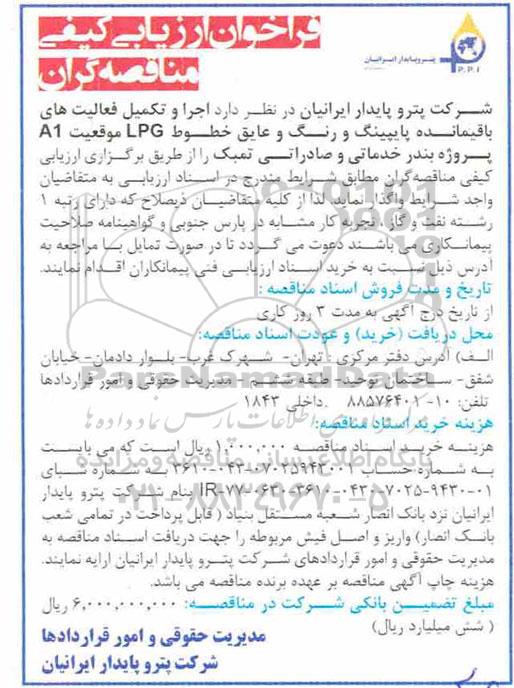 فراخوان ارزیابی کیفی
مناقصه گران
پتروپایدار ایرانیان
P.P.I
شرکت پترو پایدار ایرانیان در نظر دارد اجرا و تکمیل فعالیت های
باقیمانده پایپینگ و رنگ و عایق خطوط LPG موقعیت A1
پروژه بندر خدماتی و صادراتی تمبک را از طریق برگزاری ارزیابی
کیفی مناقصه گران مطابق شرایط مندرج در اسناد ارزیابی به متقاضیان
واجد شرایط واگذار نماید لذا از کلیه متقاضیان ذیصلاح که دارای رتبه ۱
رشته نفت و گاز، تجربه کار مشابه در پارس جنوبی و گواهینامه صلاحیت
پیمانکاری می باشند دعوت می گردد تا در صورت تمایل با مراجعه به
آدرس ذیل نسبت به خرید اسناد ارزیابی فنی پیمانکاران اقدام نمایند.
تاریخ و مدت فروش اسناد مناقصه :
از تاریخ درج آگهی به مدت ۳ روز کاری
محل دریافت (خرید) و عودت اسناد مناقصه:
الف) آدرس دفتر مرکزی : تهران- شهرک غرب- بلوار دادمان- خیابان
شفق- ساختمان توحید- طبقه ششم - مدیریت حقوقی و امور قراردادها
تلفن: ۱۰-۸۸۵۷۶۴۰۱ .داخلی ۱۸۴۳
هزینه خرید اسناد مناقصه:
هزینه خرید اسناد مناقصه ۱،۰۰۰،۰۰۰ ریال است که می بایست
به شماره حساب به شماره شبای
بنام شرکت پترو پایدار
ایرانیان نزد بانک انصار شعبه مستقل بنیاد ( قابل پرداخت در تمامی شعب
بانک انصار) واریز و اصل فیش مربوطه را جهت دریافت اسناد مناقصه به
مدیریت حقوقی و امور قراردادهای شرکت پترو پایدار ایرانیان ارایه نمایند.
هزینه چاپ آگهی مناقصه بر عهده برنده مناقصه می باشد.
مبلغ تضمین بانکی شرکت در مناقصه: ۶،۰۰۰،۰۰۰،۰۰۰ ریال
( شش میلیارد ریال)
مدیریت حقوقی و امور قراردادها
شرکت پترو پایدار ایرانیان
ParsNamadData
پایگاه اطلاع رسانی مناقصه و مزایده
۰۲۱-۸۸۳۴۹۶۷۰-۵